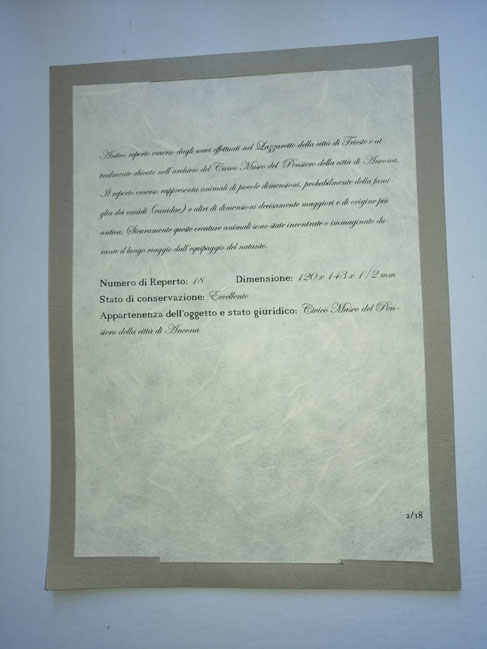 Antico reperto emerso dagli scavi effettuati nel Lazzaretto della città di Trieste e at-
tualmente ubicato nell'archivio del Civico Museo del Pensiero della città di Ancona.
Il reperto emerso rappresenta animali di piccole dimensioni, probabilmente della fami-
glia dei canidi (canidae) e altri di dimensioni decisamente maggiori e di origine più
antica. Sicuramente queste creature animali sono state incontrate o immaginate du-
rante il lungo viaggio dall'equipaggio del natante.
Numero di Reperto: 18 Dimensione: 120 x 143 x 1/2 mm
Stato di conservazione: Eccellente
Appartenenza dell'oggetto e stato giuridico: Civico Museo del Pen-
siero della città di Ancona
2/18